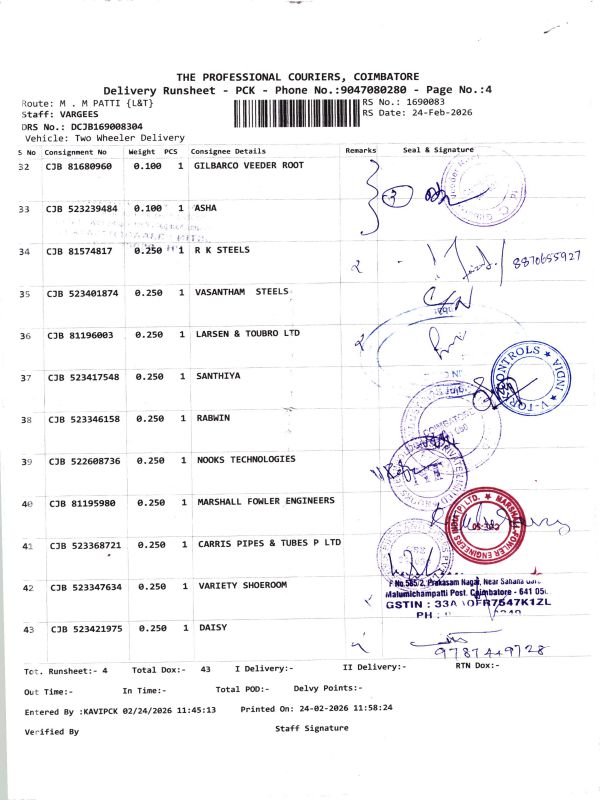 THE PROFESSIONAL COURIERS, COIMBATORE
Delivery Runsheet - PCK - Phone No.:9047080280 - Page No.:4
Route: M . M PATTI {L&T}
RS No.: 1690083
Staff: VARGEES
RS Date: 24-Feb-2026
DRS No.: DCJB169008304
Vehicle: Two Wheeler Delivery
S No Consignment No Weight PCS Consignee Details Remarks Seal & Signature
32 CJB 81680960 0.100 1 GILBARCO VEEDER ROOT
33 CJB 523239484 0.100 1 ASHA
34 CJB 81574817 0.250 1 R K STEELS 8870655927
35 CJB 523401874 0.250 1 VASANTHAM STEELS
36 CJB 81196003 0.250 1 LARSEN & TOUBRO LTD
37 CJB 523417548 0.250 1 SANTHIYA
CONTROLS ★ INDIA ★
38 CJB 523346158 0.250 1 RABWIN
COIMBATORE
39 CJB 522608736 0.250 1 NOOKS TECHNOLOGIES
40 CJB 81195980 0.250 1 MARSHALL FOWLER ENGINEERS
MARSHALL FOWLER ENGINEERS INDIA (P) LTD. ★
41 CJB 523368721 0.250 1 CARRIS PIPES & TUBES P LTD
42 CJB 523347634 0.250 1 VARIETY SHOEROOM
Prakasam Nagar, Near Sahana
Malumichampatti Post. Coimbatore - 641
GSTIN : 33A
PH :
43 CJB 523421975 0.250 1 DAISY
9787449728
Tot. Runsheet:- 4 Total Dox:- 43 I Delivery:- II Delivery:- RTN Dox:-
Out Time:- In Time:- Total POD:- Delvy Points:-
Entered By :KAVIPCK 02/24/2026 11:45:13 Printed On: 24-02-2026 11:58:24
Verified By Staff Signature